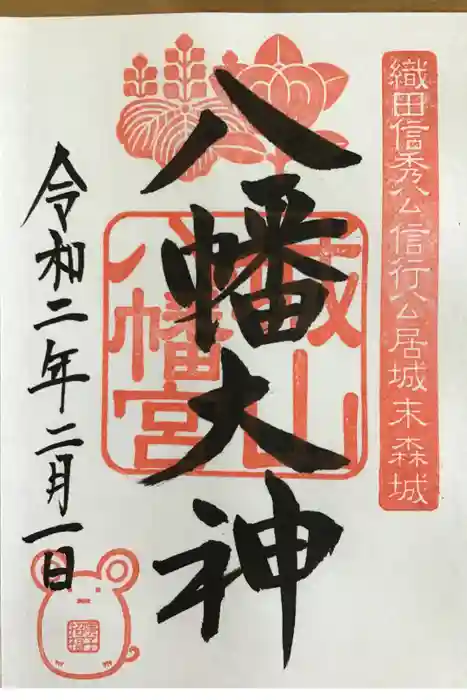 織田信秀公信行公居城末森城
八幡大神
城山
八幡宮
令和二年二月一日